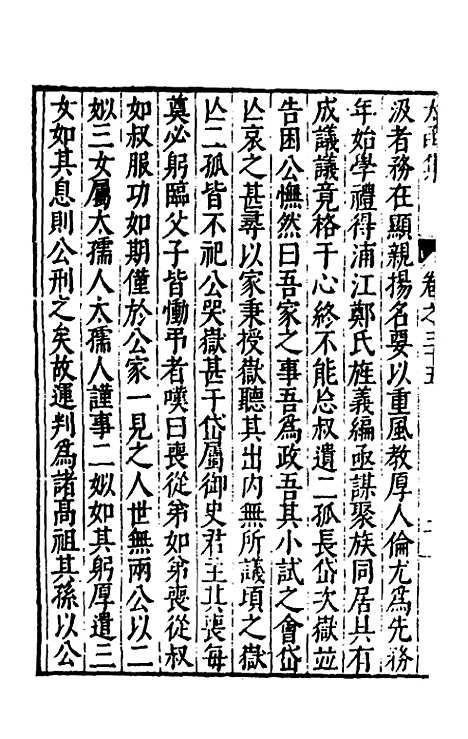 太函集 卷之三十五
汲者務在顯親揚名要以重風教厚人倫尤爲先務
年始學禮得浦江鄭氏旌義編亟謀聚族同居具有
成議議竟格于心終不能忘叔遺二孤長岱次嶽並
告困公憮然曰吾家之事吾爲政吾其小試之會岱
亾哀之甚尋以家秉授嶽聽其出內無所議頃之嶽
亾二孤皆不祀公哭嶽甚于岱屬御史君主其喪每
奠必躬臨父子皆慟弔者嘆曰喪從弟如弟喪從叔
如叔服功如期僅於公家一見之人世無兩公以二
姒三女屬太孺人太孺人謹事二姒如其躬厚遺三
女如其息則公刑之矣故運判爲諸髙祖其孫以公